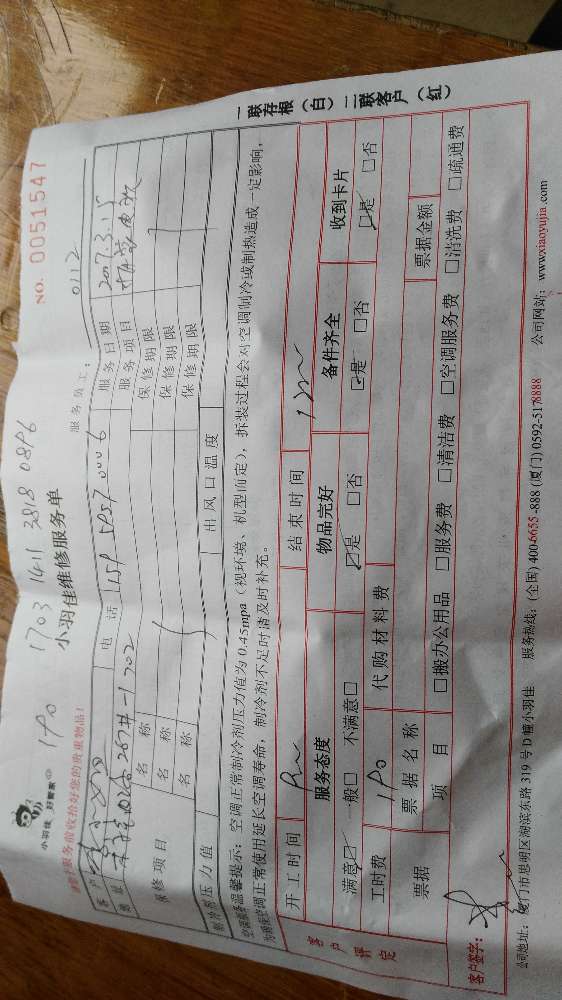 NO. 0051547
1703 1411 3818 0896
小羽佳 好管家
小羽佳维修服务单
服务员工: 0112
服务前收拾好您的贵重物品!
客户
电话
服务日期 2017.3.15
服务项目
保修项目
名称
保修期限
名称
保修期限
名称
保修期限
压力值
出风口温度
温馨提示:空调正常制冷剂压力值为0.45mpa(视环境、机型而定),拆装过程会对空调制冷或制热造成一定影响,
正常使用延长空调寿命,制冷剂不足时请及时补充。
客户评定
开工时间
结束时间
服务态度
物品完好
备件齐全
收到卡片
满意☑ 一般□ 不满意□
☑是 □否
☑是 □否
☑是 □否
工时费
代购材料费
票据
票据名称
票据金额
项目
□搬办公用品 □服务费 □清洁费 □空调服务费 □清洗费 □疏通费
客户签字:
公司地址:厦门市思明区湖滨东路319号D幢小羽佳 服务热线:(全国)400-6655-888 (厦门)0592-5178888 公司网站:www.xiaoyujia.com
一联存根(白)二联客户(红)